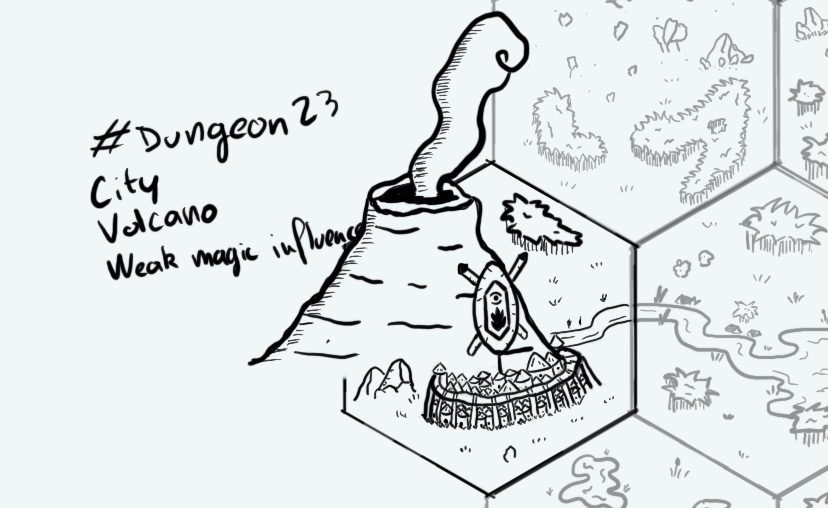 #Dungeon23
City
Volcano
Weak magic influence